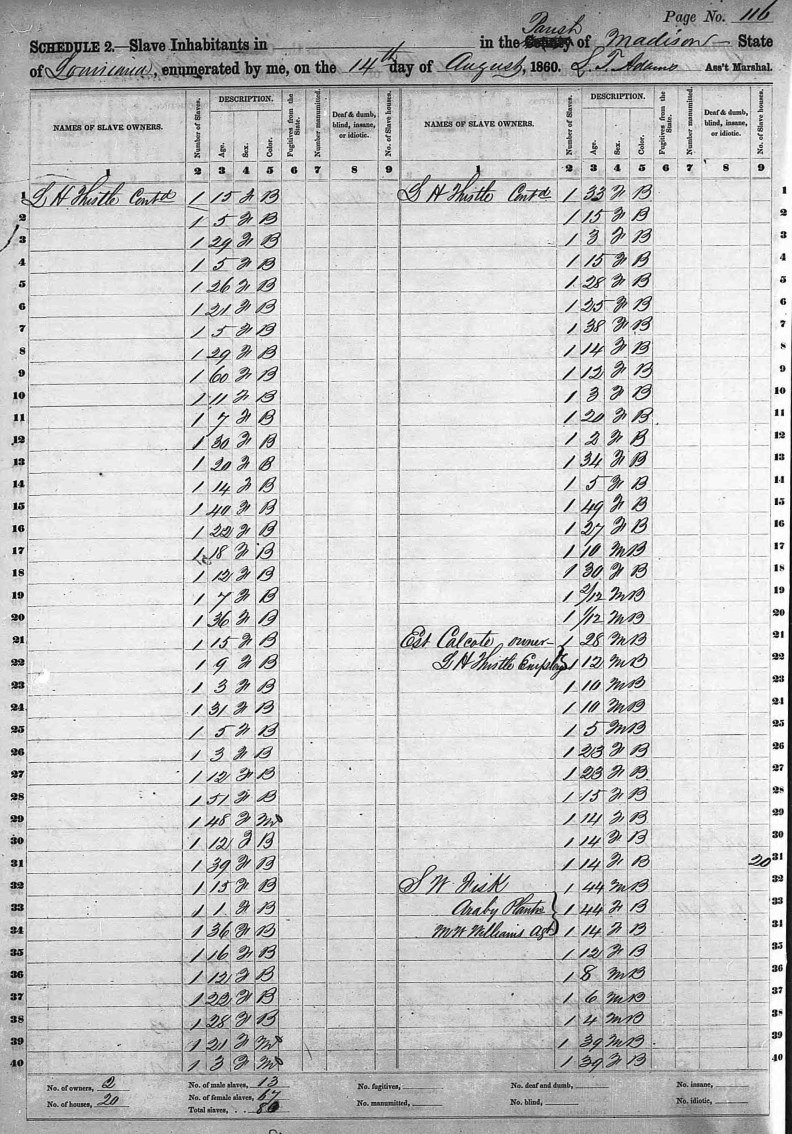 Page No. 116
SCHEDULE 2.—Slave Inhabitants in in the County Parish of Madison State
of Louisiana, enumerated by me, on the 14th day of August, 1860. L. T. Adams Ass't Marshal.
NAMES OF SLAVE OWNERS. Number of Slaves. DESCRIPTION. Age. Sex. Color. Fugitives from the State. Number manumitted. Deaf & dumb, blind, insane, or idiotic. No. of Slave houses. NAMES OF SLAVE OWNERS. Number of Slaves. DESCRIPTION. Age. Sex. Color. Fugitives from the State. Number manumitted. Deaf & dumb, blind, insane, or idiotic. No. of Slave houses.
1 2 3 4 5 6 7 8 9 1 2 3 4 5 6 7 8 9
1 G H Thistle Contd 1 15 F B G H Thistle Contd 1 33 F B 1
2 1 5 F B 1 15 F B 2
3 1 29 F B 1 3 F B 3
4 1 5 F B 1 15 F B 4
5 1 26 F B 1 28 F B 5
6 1 21 F B 1 25 F B 6
7 1 5 F B 1 38 F B 7
8 1 29 F B 1 14 F B 8
9 1 60 F B 1 12 F B 9
10 1 11 F B 1 3 F B 10
11 1 7 F B 1 20 F B 11
12 1 30 F B 1 2 F B 12
13 1 20 F B 1 34 F B 13
14 1 14 F B 1 5 F B 14
15 1 40 F B 1 49 F B 15
16 1 22 F B 1 27 F B 16
17 1 18 F B 1 10 M B 17
18 1 12 F B 1 30 F B 18
19 1 7 F B 1 2/12 M B 19
20 1 36 F B 1 1/12 M B 20
21 1 15 F B Est Calcote owner 1 28 M B 21
22 1 9 F B G H Thistle Employ 1 12 M B 22
23 1 3 F B 1 10 M B 23
24 1 31 F B 1 10 M B 24
25 1 5 F B 1 5 M B 25
26 1 3 F B 1 23 F B 26
27 1 12 F B 1 23 F B 27
28 1 51 F B 1 15 F B 28
29 1 48 F M 1 14 F B 29
30 1 12 F B 1 14 F B 30
31 1 39 F B 1 14 F B 20 31
32 1 15 F B S W Fisk 1 44 M B 32
33 1 1 F B Araby Plantn 1 44 F B 33
34 1 36 F B M W Williams Agt 1 14 F B 34
35 1 16 F B 1 12 F B 35
36 1 12 F B 1 8 M B 36
37 1 22 F B 1 6 M B 37
38 1 28 F B 1 4 M B 38
39 1 21 F M 1 39 M B 39
40 1 3 F M 1 39 F B 40
No. of owners, 2 No. of male slaves, 13 No. fugitives, No. deaf and dumb, No. insane,
No. of houses, 20 No. of female slaves, 67 No. manumitted, No. blind, No. idiotic,
Total slaves, 80